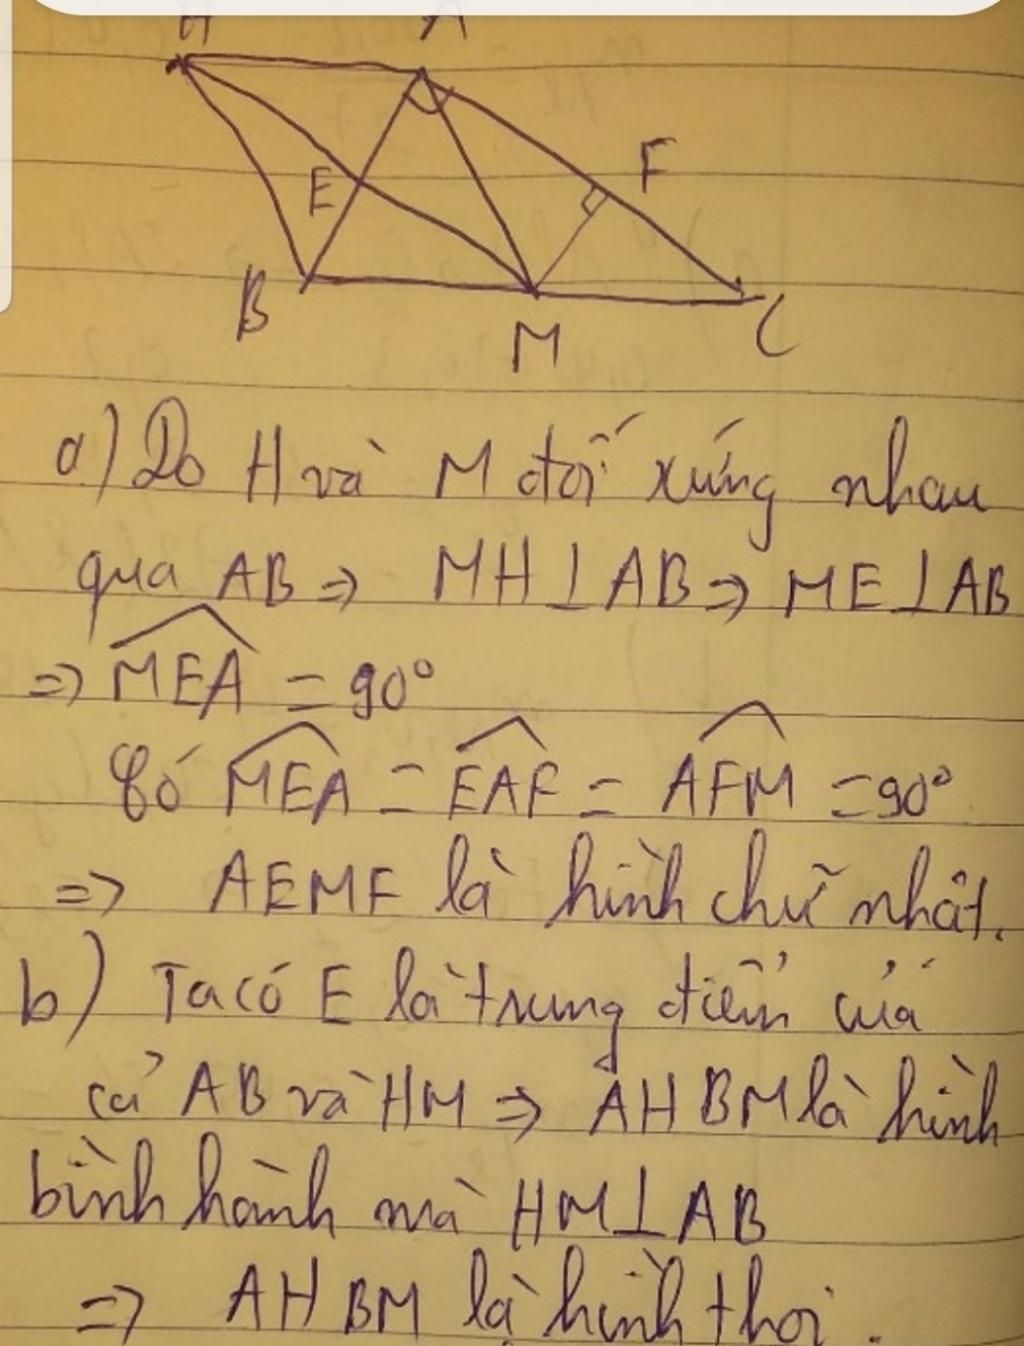 H A
E F
B M C
a) Do H và M đối xứng nhau
qua AB => MH ⊥ AB => ME ⊥ AB
=> MEA = 90°
Có MEA = EAF = AFM = 90°
=> AEMF là hình chữ nhật.
b) Ta có E là trung điểm của
cả AB và HM => AHBM là hình
bình hành mà HM ⊥ AB
=> AHBM là hình thoi.